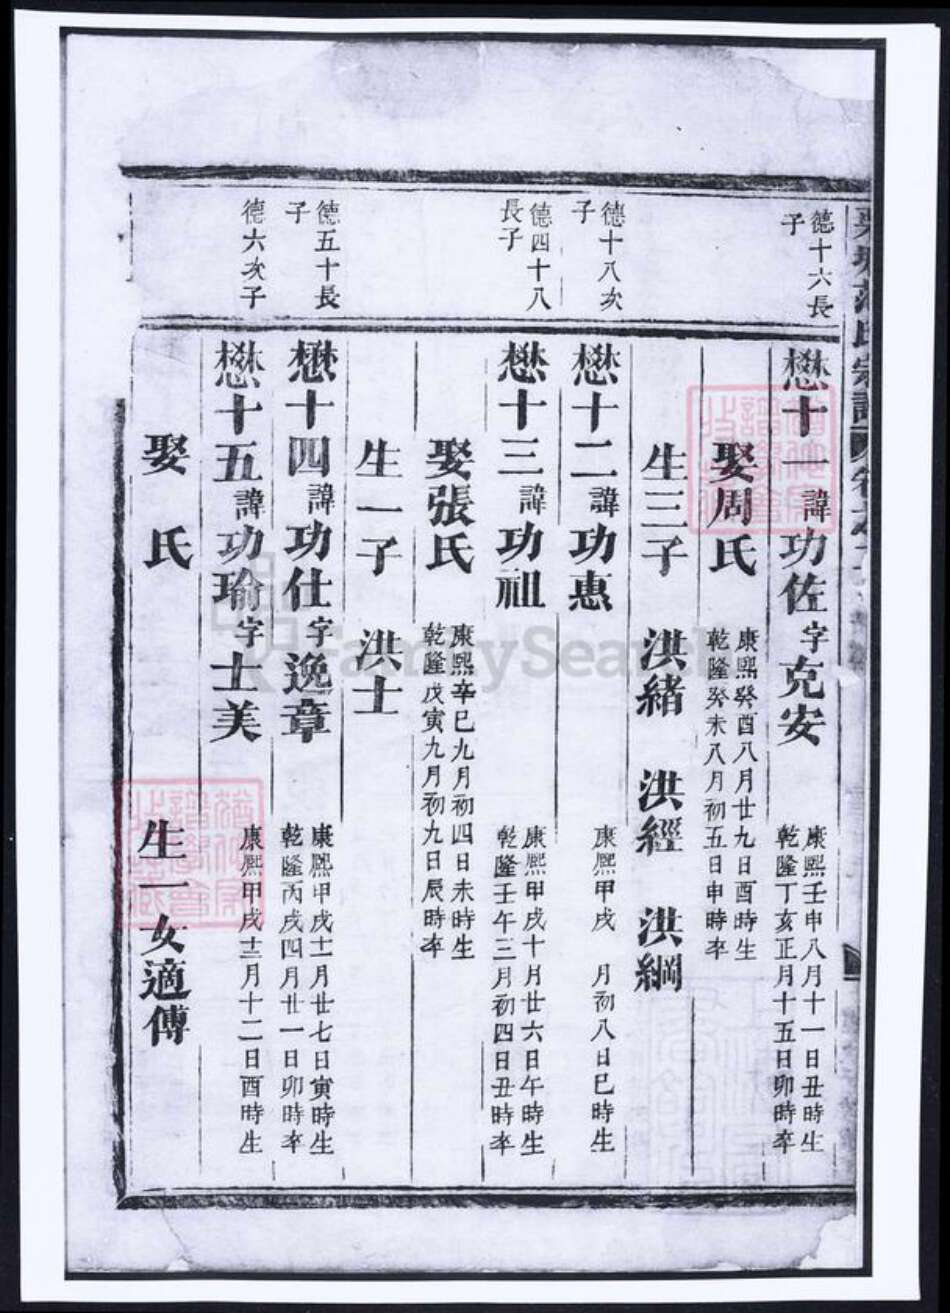 氏宗譜
德十六長子
懋十一諱功佐字克安
康熙壬申八月十一日丑時生
乾隆丁亥正月十五日卯時卒
娶周氏
康熙癸酉八月廿九日酉時生
乾隆癸未八月初五日申時卒
生三子 洪緒 洪經 洪綱
德十八次子
懋十二諱功惠
康熙甲戌 月初八日巳時生
德四十八長子
懋十三諱功祖
康熙甲戌十月廿六日午時生
乾隆壬午三月初四日丑時卒
娶張氏
康熙辛巳九月初四日未時生
乾隆戊寅九月初九日辰時卒
生一子 洪士
德五十長子
懋十四諱功仕字逸章
康熙甲戌十一月廿七日寅時生
乾隆丙戌四月廿一日卯時卒
德六次子
懋十五諱功瑜字士美
康熙甲戌十二月十二日酉時生
娶 氏
生一女適傅
FamilySearch